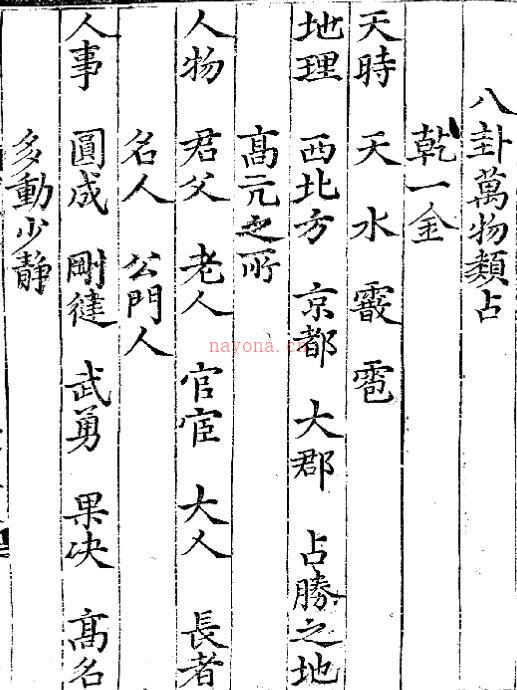 八卦萬物類占
乾一金
天時 天 水 霰 雹
地理 西北方 京都 大郡 占勝之地
高元之所
人物 君父 老人 官宦 大人 長者
名人 公門人
人事 圓成 剛徤 武勇 果决 高名
多動少靜
nayona.cn